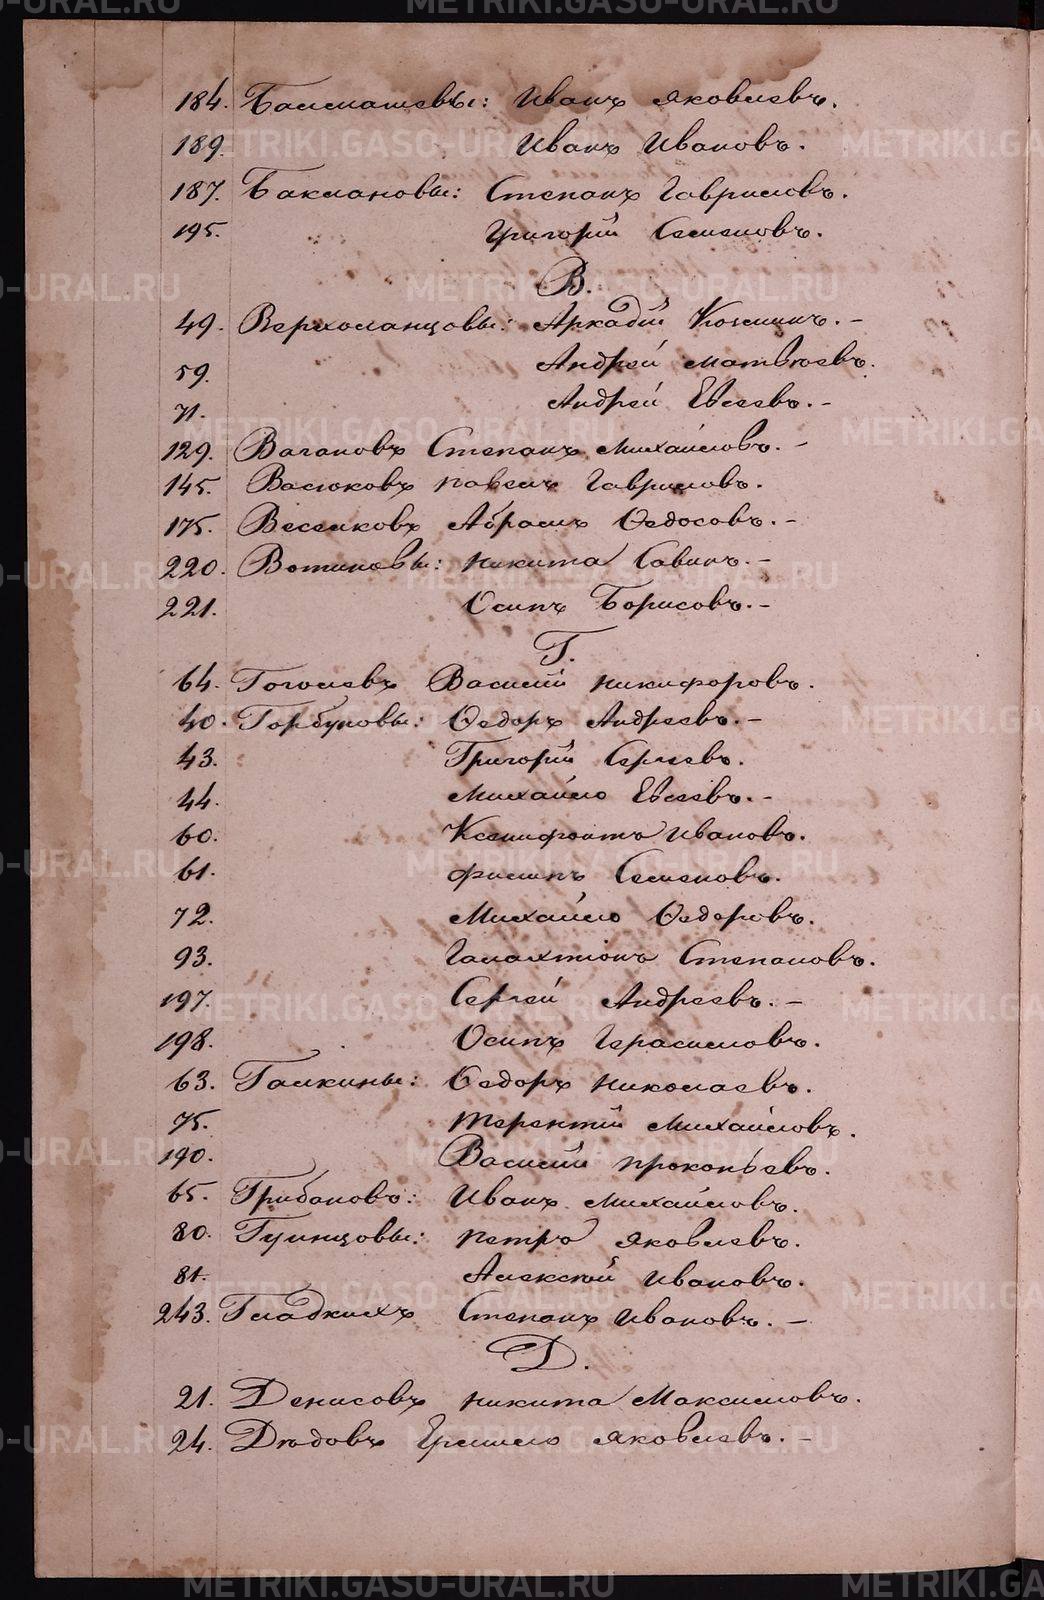 184. Балмашевы: Иванъ Яковлевъ.
189. Иванъ Ивановъ.
187. Баклановы: Степанъ Гавриловъ.
195. Григорій Семеновъ.
В.
49. Верхоланцовы: Аркадій Козминъ. –
59. Андрей Матвѣевъ.
71. Андрей Евсеевъ. –
129. Вагановъ Степанъ Михайловъ. –
145. Васюковъ Павелъ Гавриловъ.
175. Веселковъ Абрамъ Ѳедосовъ. –
220. Вотиновы: Никита Савинъ. –
221. Осипъ Борисовъ. –
Г.
64. Гоголевъ Василій Никифоровъ.
40. Горбуновы: Ѳедоръ Андреевъ. –
43. Григорій Сергеевъ.
44. Михайло Евсеевъ. –
60. Ксенифонтъ Ивановъ.
61. Филипъ Семеновъ.
72. Михайло Ѳедоровъ.
93. Галахтіонъ Степановъ.
197. Сергей Андреевъ. –
198. Осипъ Герасимовъ.
63. Галкины: Ѳедоръ Николаевъ.
75. Терентій Михайловъ.
190. Василій Прокопьевъ.
65. Грибановъ: Иванъ Михайловъ.
80. Гуинцовы: Петръ Яковлевъ.
81. Алексѣй Ивановъ.
243. Гладкихъ Степанъ Ивановъ. –
Д.
21. Денисовъ Никита Максимовъ.
24. Дѣдовъ Ермило Яковлевъ. –
METRIKI.GASO-URAL.RU